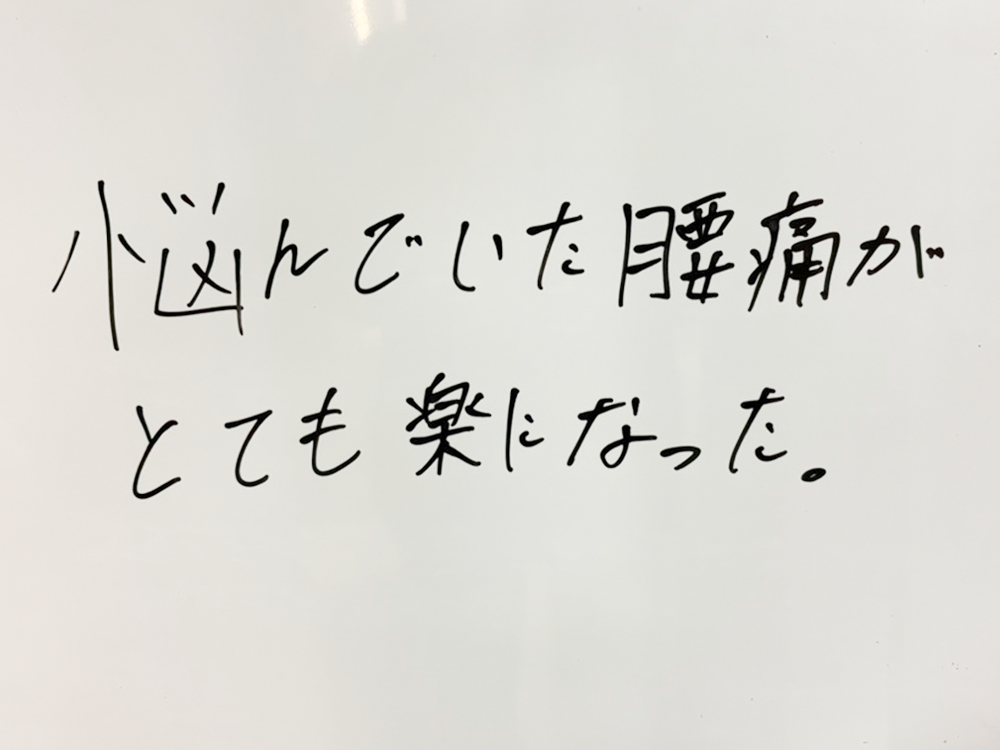 悩んでいた腰痛が
とても楽になった。